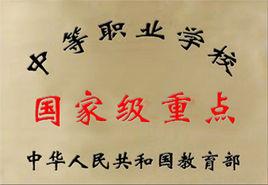 中等职业学校
国家级重点
中华人民共和国教育部